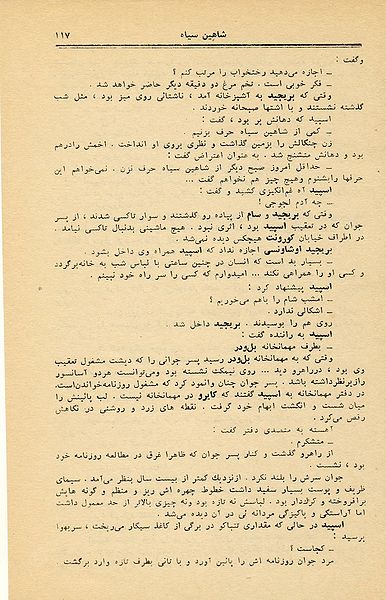 شاهین سیاه ۱۱۷
وگفت :
ــ اجازه می‌دهید رختخواب را مرتب کنم ؟
ــ فکر خوبی است . تخم مرغ دو دقیقه دیگر حاضر خواهد شد .
وقتی که بریجید به آشپزخانه آمد ، ناشتائی روی میز بود ، مثل شب
گذشته نشستند و با اشتها صبحانه خوردند .
اسپید که دهانش پر بود ، گفت :
ــ کمی از شاهین سیاه حرف بزنیم .
زن چنگالش را بزمین گذاشت و نظری بروی او انداخت . اخمش رادرهم
بود و دهانش متشنج شد . به عنوان اعتراض گفت :
ــ حداقل امروز صبح دیگر از شاهین سیاه حرف نزن . نمی‌خواهم این
حرفها رابشنوم وهیچ چیز هم نخواهم گفت ...
اسپید آه غم‌انگیزی کشید و گفت :
ــ چه آدم لجوجی !
وقتی که بریجید و سام از پیاده رو گذشتند و سوار تاکسی شدند ، از پسر
جوان که در تعقیب اسپید بود ، اثری نبود . هیچ ماشینی بدنبال تاکسی نیامد .
در اطراف خیابان کورونت هیچکس دیده نمی‌شد .
بریجید اوشاونسی اجازه نداد که اسپید همراه وی داخل بشود .
ــ بسیار بد است که انسان در چنین ساعتی با لباس شب به خانه‌برگردد
و کسی او را همراهی نکند ... امیدوارم که کسی را سر راه خود نبینم .
اسپید پیشنهاد کرد :
ــ امشب شام را باهم می‌خوریم ؟
ــ اشکالی ندارد .
روی هم را بوسیدند . بریجید داخل شد .
اسپید به راننده گفت :
ــ بطرف مهمانخانه بل‌ودر
وقتی که به مهمانخانه بل‌ودر رسید پسر جوانی را که دیشب مشغول تعقیب
وی بود ، درراهرو دید ... روی نیمکت نشسته بود ومی‌توانست هردو آسانسور
رازیرنظرداشته باشد . پسر جوان چنان وانمود کرد که مشغول روزنامه‌خواندن‌است.
در دفتر مهمانخانه به اسپید گفتند که کایرو در مهمانخانه نیست . لب پائینش را
میان شست و انگشت ابهام خود گرفت . نقطه های زرد و روشنی در نگاهش
رقص می‌کرد .
آهسته به متصدی دفتر گفت :
ــ متشکرم .
از راهرو گذشت و کنار پسر جوان که ظاهرا غرق در مطالعه روزنامه خود
بود ، نشست .
جوان سرش را بلند نکرد . ازنزدیک کمتر از بیست سال بنظر می‌آمد . سیمای
ظریف و پوست بسیار سفید داشت خطوط چهره اش ریز و منظم و گونه هایش
برافروخته و کرک‌دار بود . لباسش نه تازه بود ونه چیزی بالاتر از حد معمول داشت
اما آراستگی و پاکیزگی مردانه ئی در آن دیده می‌شد .
اسپید در حالی که مقداری تنباکو در برگی از کاغذ سیگار می‌ریخت ، سربهوا
پرسید :
ــ کجاست ؟
مرد جوان روزنامه اش را پائین آورد و با تانی بطرف تازه وارد برگشت .